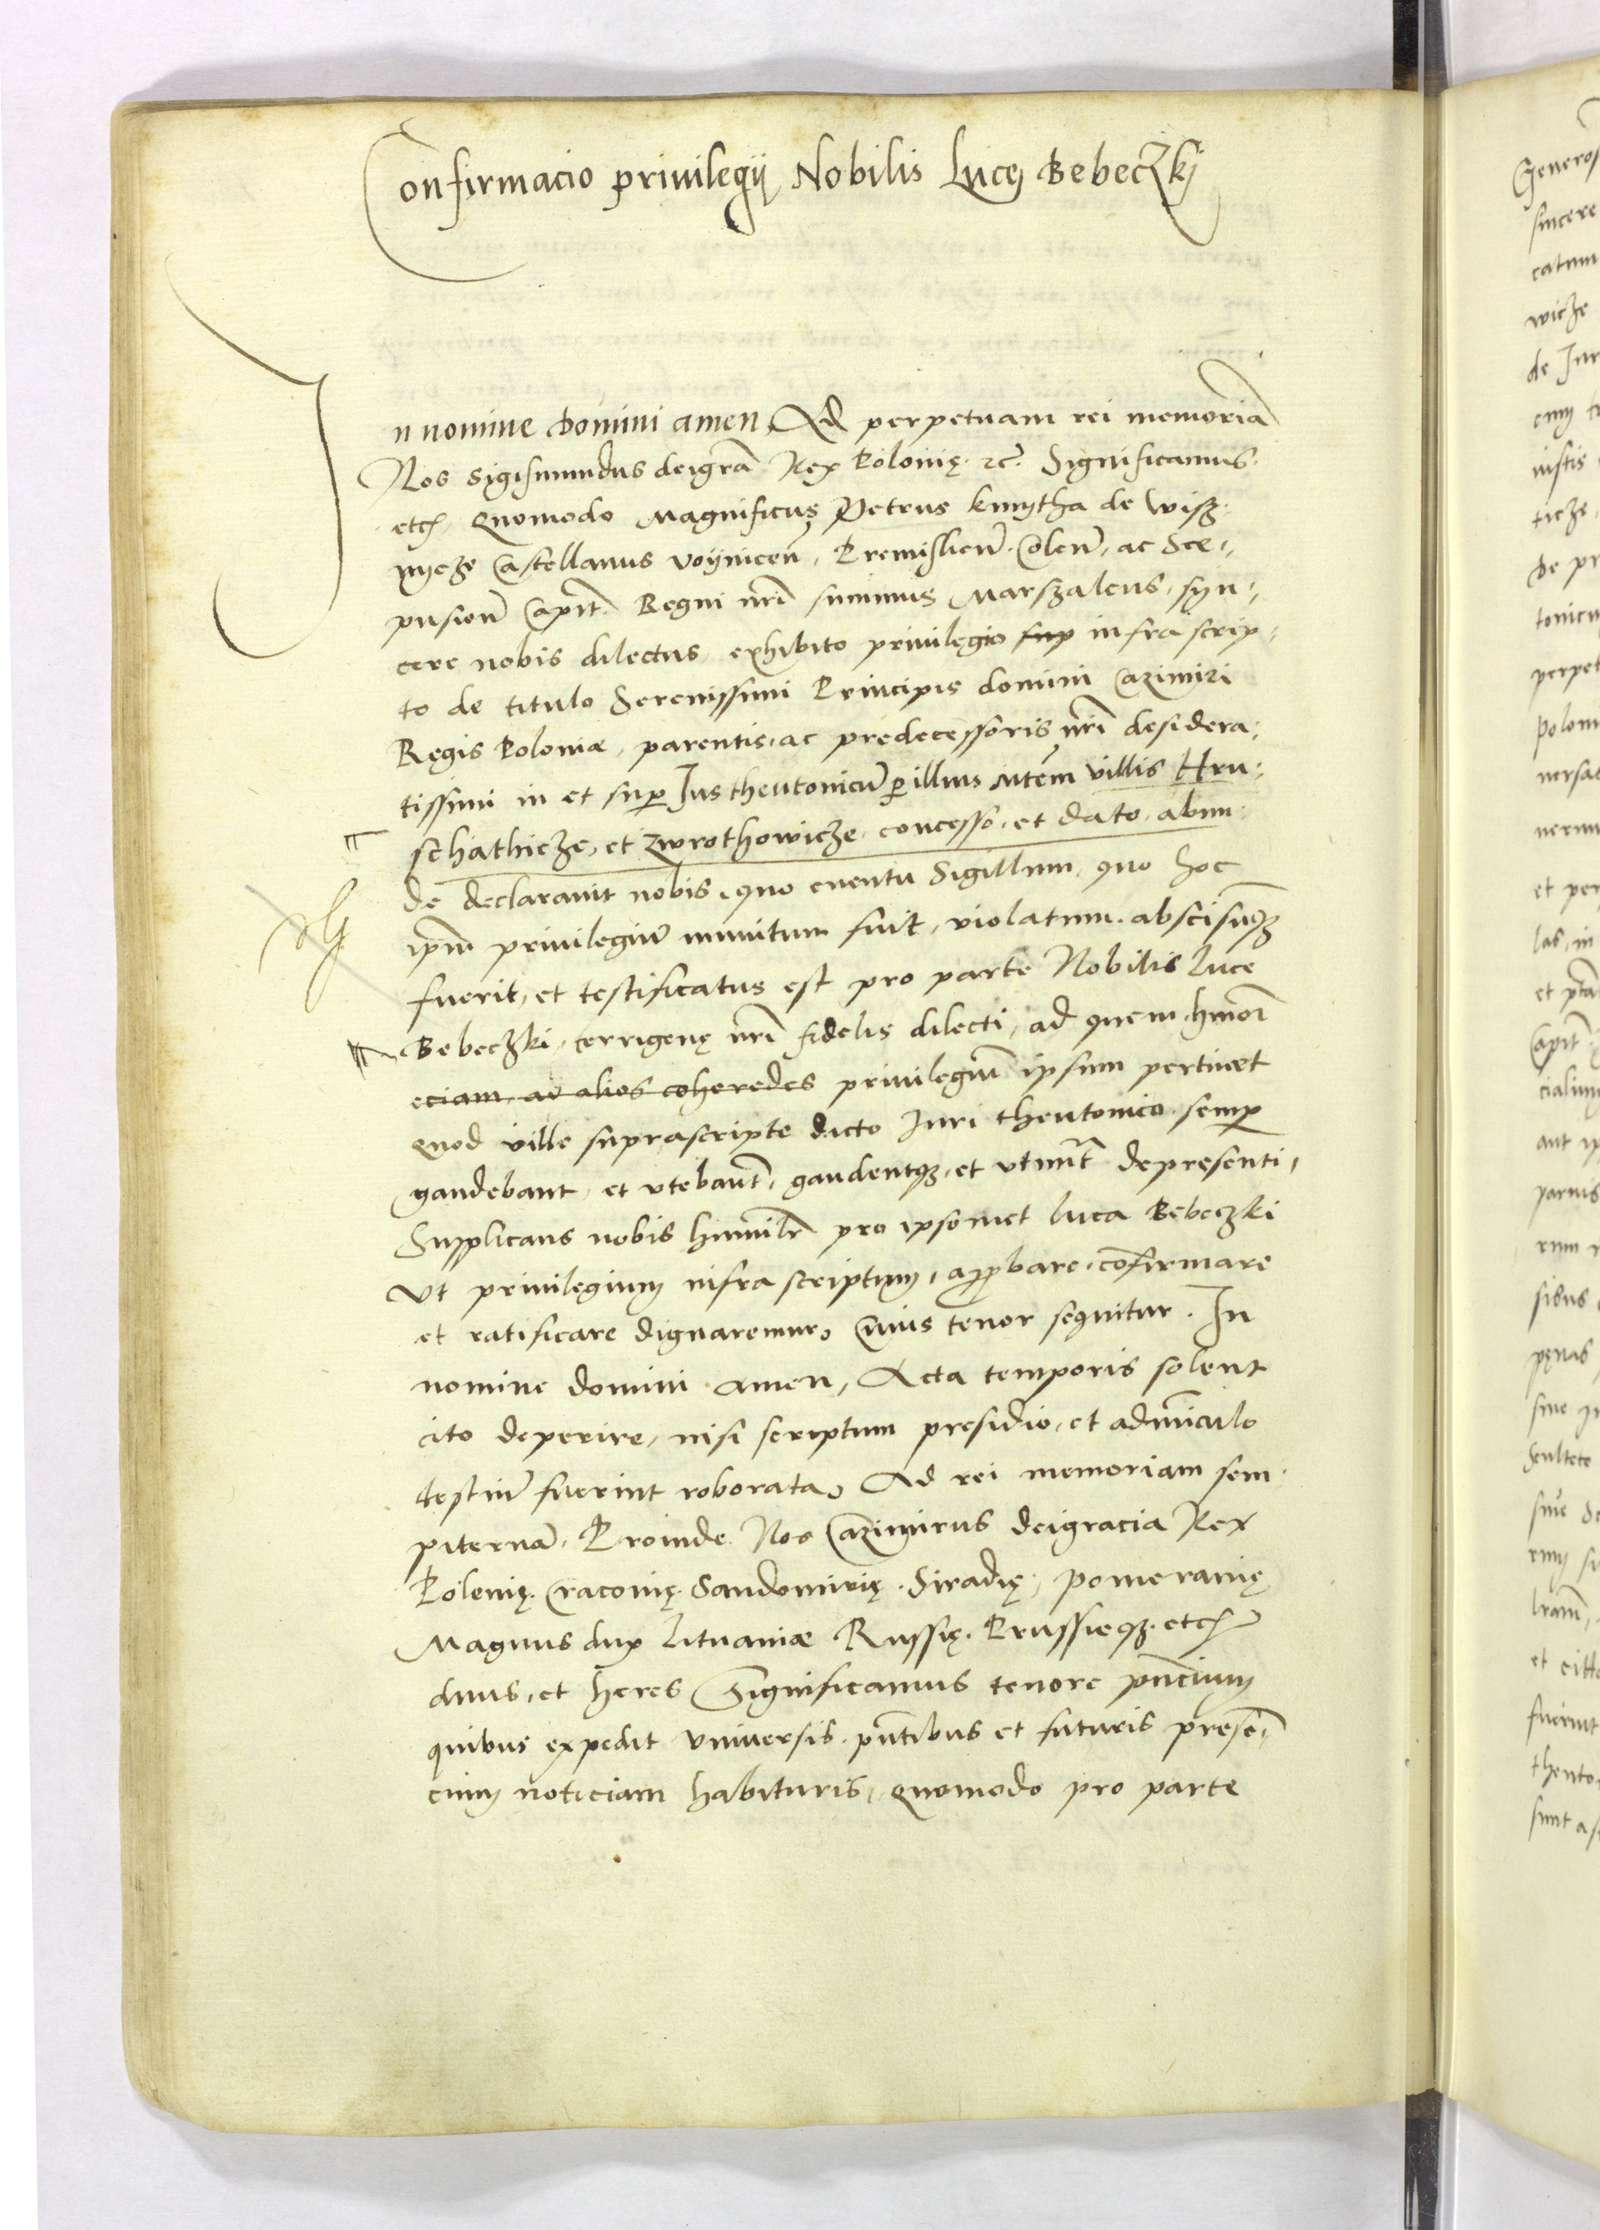 Confirmacio privilegij Nobilis Lucę Bebeczkj
In nomine domini amen, Ad perpetuam rei memoriã
Nos Sigismundus dei grã Rex Polonię etc̃. Significamus
etc̃, Quomodo Magnificus Petrus kmytha de Wisz-
nycze Castellanus Voynicen̄, Premislien̄. Colen̄, ac Sce-
pusien̄ Capit̄. Regni nr̄i summus Marszalcus, syn-
cere nobis dilectus, exhibito privilegio sup infra scrip-
to de titulo Serenissimi Principis domini Cazimiri
Regis Poloniæ, parentis, ac predecessoris nr̄i desidera-
tissimi in et sup Jus theutonicũ p illius villis Hru-
schathicze, et Zwrothowicze, concesso, et dato, abun-
de declaravit nobis, quo eventu Sigillum, quo hoc
ipm̄ privilegiũ munitum fuit, violatum, abscisũq₃
fuerit, et testificatus est pro parte Nobilis Luce
Bebeczki, terrigenę nr̄i fidelis dilecti, ad quem hmōi
eciam ad alios coheredes privilegiũ ipsum pertinet
Quod ville suprascripte dicto Juri theutonico semp
gaudebant, et utebant̄, gaudentq₃, et utunt̄ de presenti,
Supplicans nobis humilr̄ pro ipsomet Luca Bebeczki
Ut privilegium infra scriptum, approbare, cõfirmare
et ratificare dignaremur, Cuius tenor sequitur. In
nomine domini amen, Acta temporis solent
cito deperire, nisi scriptum presidio, et admĩculo
testiũ fuerint roborata, Ad rei memoriam sem-
piternã, Proinde Nos Cazimirus dei gracia Rex
Polonię. Cracovię. Sandomirię. Siradię, pomeranię
Magnus dux Lituaniæ Russię. Prussieq₃. etc̃
dnus, et heres Significamus tenore pñcium
quibus expedit universis, pñtibus et futuris presẽ-
cium noticiam habituris, Quomodo pro parte